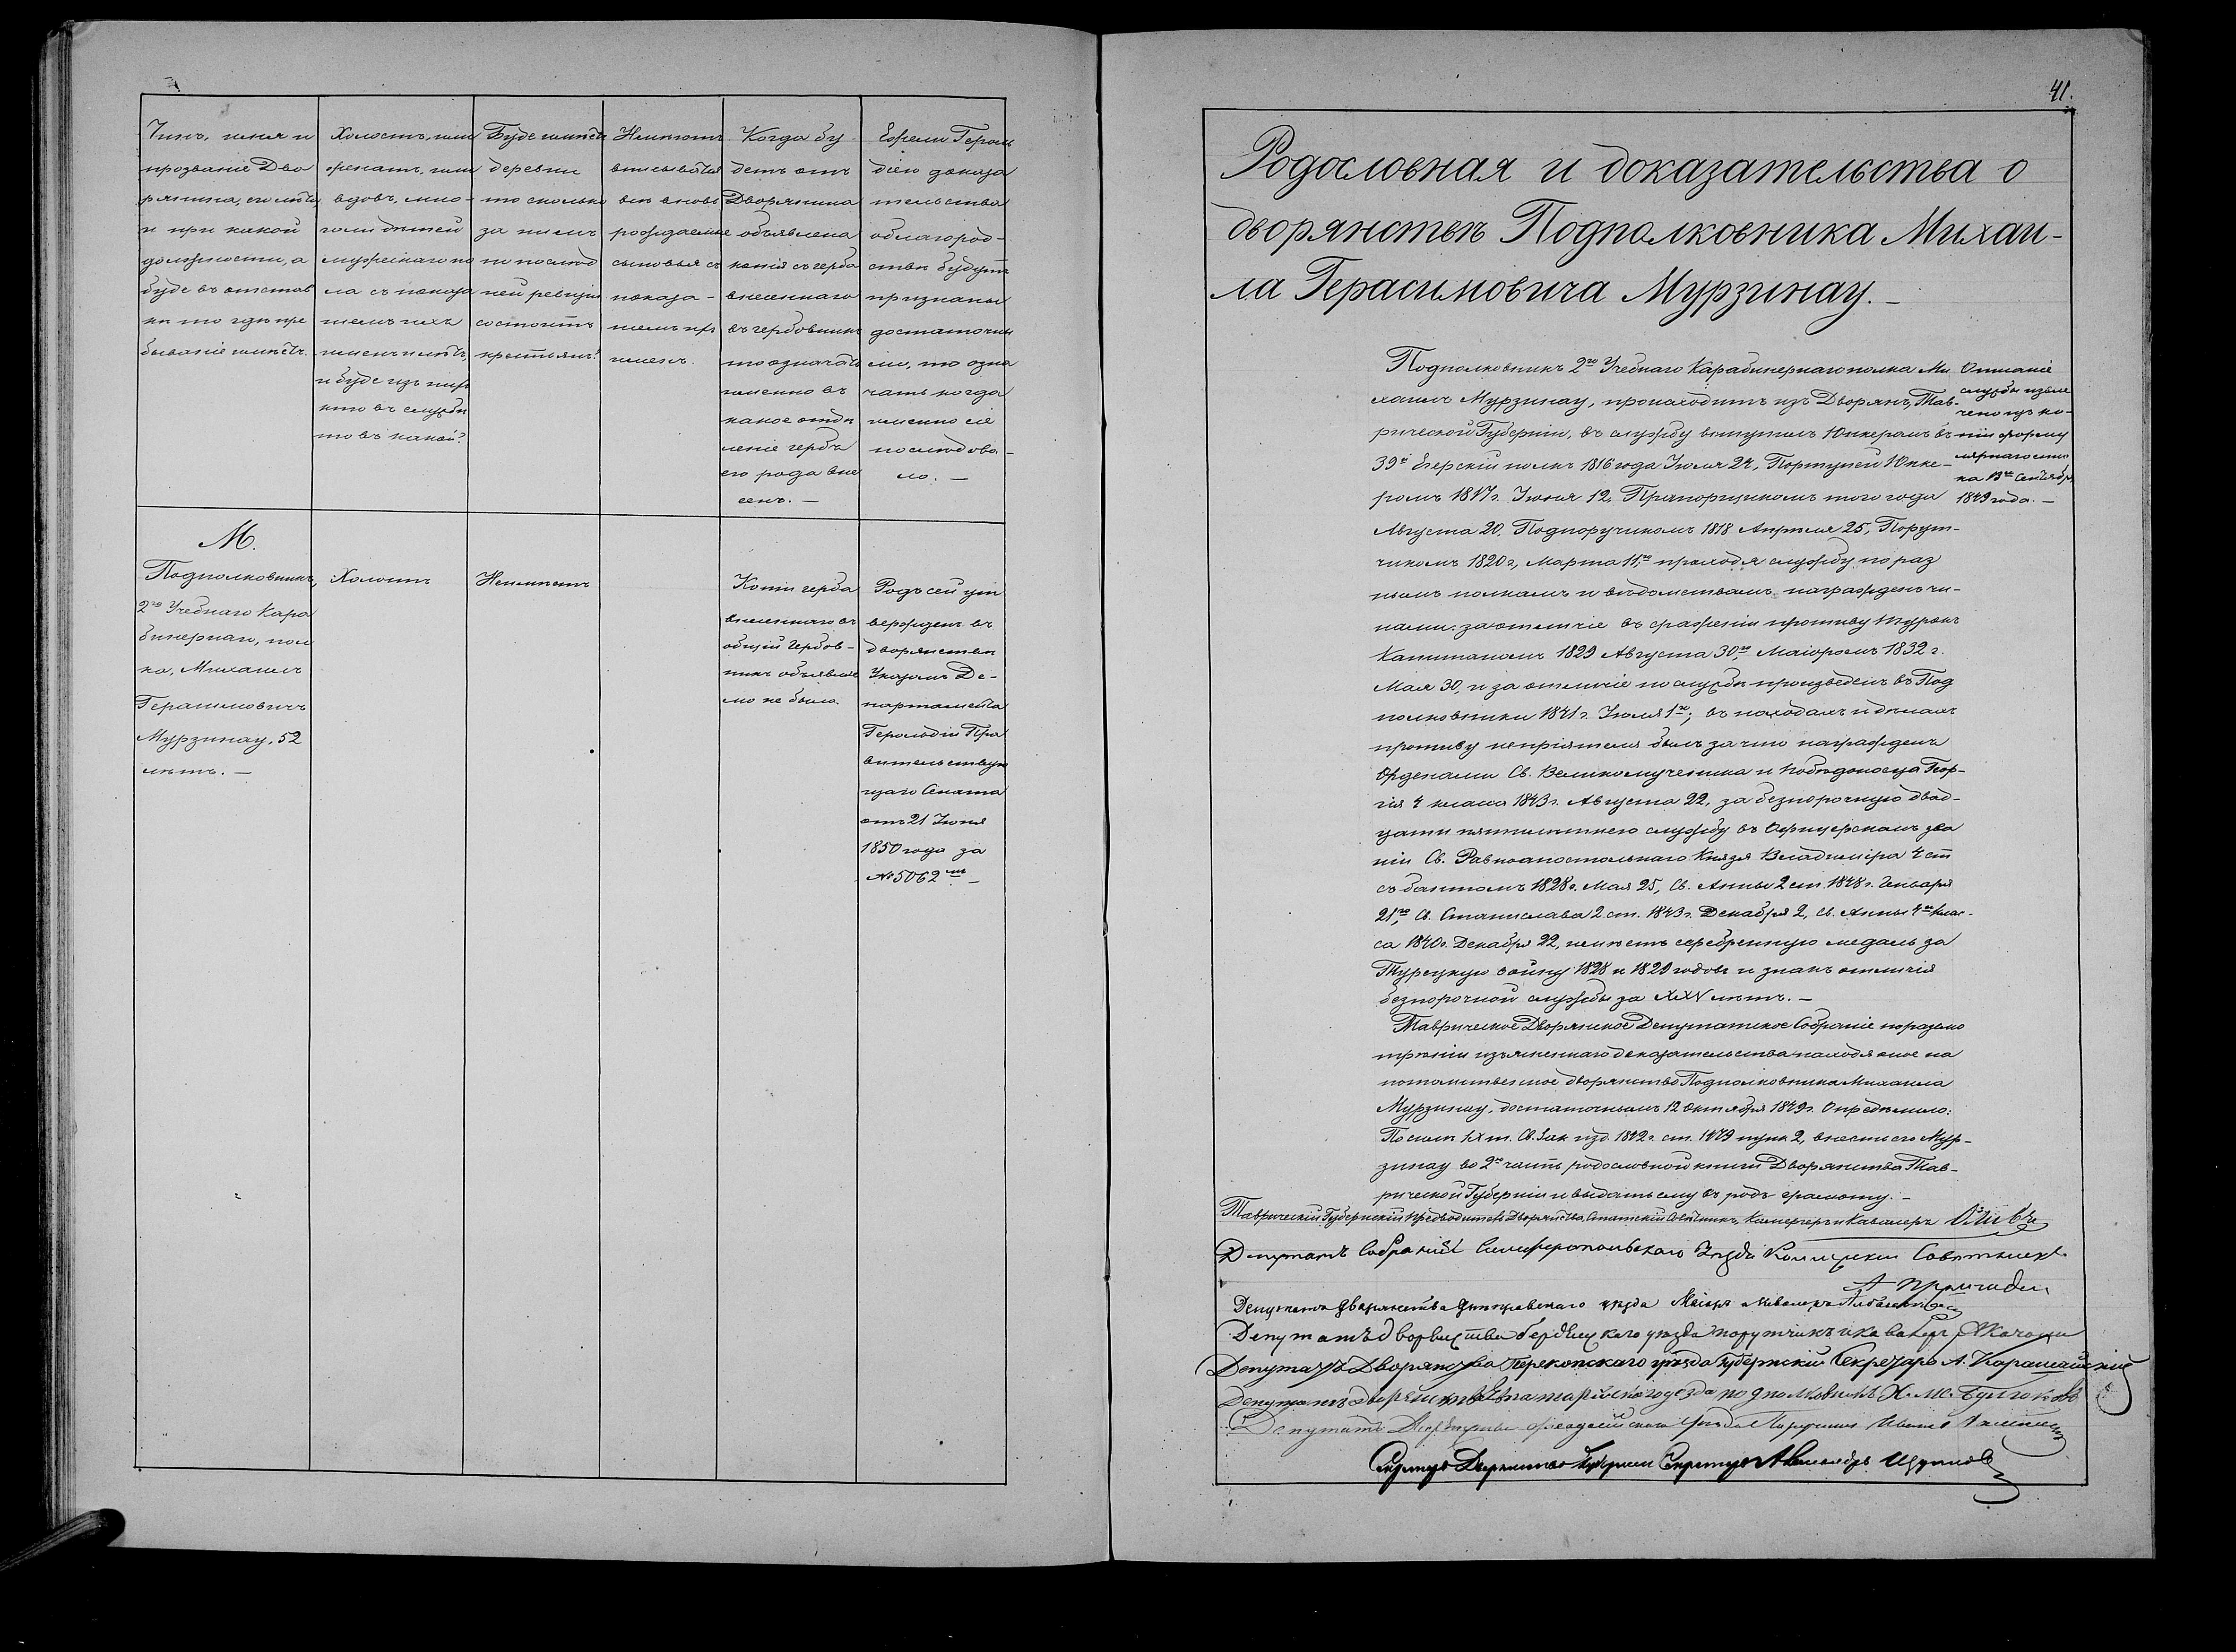 Чинъ, имя и
прозваніе Дво
рянина, его лѣта,
и при какой
должности, а
буде въ отстав
кѣ то гдѣ пре
бываніе имѣетъ.
Холостъ, или
женатъ, или
вдовъ, мно-
голи дѣтей
мужескаго по
ла съ показа
ніемъ ихъ
именъ и лѣтъ,
и буде изъ нихъ
кто въ службѣ
то въ какой?
Буде имѣетъ
деревни
то сколько
за нимъ
по послѣд
ней ревизіи
состоитъ
крестьянъ?
Неимѣютъ
вписыватся
вновь
рождаемые
сыновья съ
показа-
ніемъ ихъ
именъ.
Когда бу-
детъ отъ
Дворянина
объявлена
копія съ герба
внесеннаго
въ гербовникъ
то означать
именно въ
какое отдѣ
леніе гербъ
его рода вне
сенъ. —
Ежели Героль
діею доказа
тельства
облагород-
ствѣ будутъ
признаны
достаточны
ми, то озна
чать когда
именно сіе
послѣдова-
ло. —
М.
Подполковникъ,
2го Учебнаго Кара
бинернаго, пол
ка, Михаилъ
Герасимовичъ
Мурзинау, 52
лѣтъ. —
Холостъ
Неимѣетъ
Копіи герба
внесеннаго въ
общій Гербов-
никъ объявле
но не было.
Родъ сей ут
вержденъ въ
дворянствѣ
Указомъ Де-
партамента
Герольдіи Пра
вительствую
щаго Сената
отъ 21 Іюня
1850 года за
№ 5062мъ —
41.
Родословная и доказательства о
дворянствѣ Подполковника Михаи-
ла Герасимовича Мурзинау. —
Подполковникъ 2го Учебнаго Карабинернаго полка Ми
хаилъ Мурзинау, происходитъ изъ Дворянъ, Тав-
рической Губерніи, въ службу вступилъ Юнкеромъ въ
39й Егерскій полкъ 1816 года Іюля 24, Портупей Юнке-
ромъ 1817г. Іюня 12, Прапорщикомъ того года
Августа 20, Подпоручикомъ 1818 Апреля 25, Порут-
чикомъ 1820г, Марта 11го проходя службу по раз
нымъ полкамъ и вѣдомствамъ награжденъ чи-
нами: за отличіе въ сраженіи противу турокъ
Капитаномъ 1829 Августа 30го, Маіоромъ 1832 г.
Мая 30, и за отличіе по службѣ произведенъ въ Под
полковники 1841г. Іюля 1го; въ походахъ и дѣлахъ
противу непріятеля былъ за что награжденъ
Орденами Св. Великомученика и побѣдоносца Геор-
гія 4 класса 1843г. Августа 22, за безпорочную двад-
цати пятилѣтнею службу въ Офицерскомъ зва
ніи Св. Равноапостольнаго Князя Владиміра 4 ст
съ бантомъ 1828г. Мая 25, Св. Анны 2 ст. 1848г. Генваря
21го, Св. Станислава 2 ст. 1843г. Декабря 2, Св. Анны 4го клас-
са 1840г. Декабря 22, имѣетъ серебренную медаль за
Турецкую войну 1828 и 1829 годовъ и знакъ отличія
безпорочной службы за XXV лѣтъ. —
Описаніе
службы извле
чено изъ ко-
піи форму
лярнаго спис
ка 13го Сентября
1849 года. —
Таврическое Дворянское Депутатское Собраніе по разсмо
трѣніи изъясненнаго доказательства находя оное на
потомственное дворянство Подполковника Михаила
Мурзинау, достаточнымъ 12 Октября 1849г. Опредѣлило:
По силѣ IX т. Св. Зак изд. 1842г. ст. 1479 пунк 2, внести его Мур-
зинау во 2ю часть родословной книги Дворянства Тав-
рической Губерніи и выдать ему въ родъ грамоту. —
Таврическій Губернскій Предводитель Дворянства, Статскій Совѣтникъ, Камергеръ и Кавалеръ
Депутатъ Собранія Симферопольскаго Уѣзда Коллежскій Совѣтникъ
Депутатъ дворянства Днепровскаго уѣзда Маіоръ и Кавалеръ
Депутатъ дворянства Бердянскаго уѣзда порутчикъ и кавалеръ Качони
Депутатъ Дворянства Перекопскаго уѣзда Губернскій Секретарь А. Карашайскій
Депутатъ дворянства Евпаторійскаго уезда подполковникъ Х. М. Булгаковъ
Депутатъ Дворянства Феодосійскаго уѣзда Порутчикъ Иванъ
Секретарь Дворянства Губернскій Секретарь Александръ